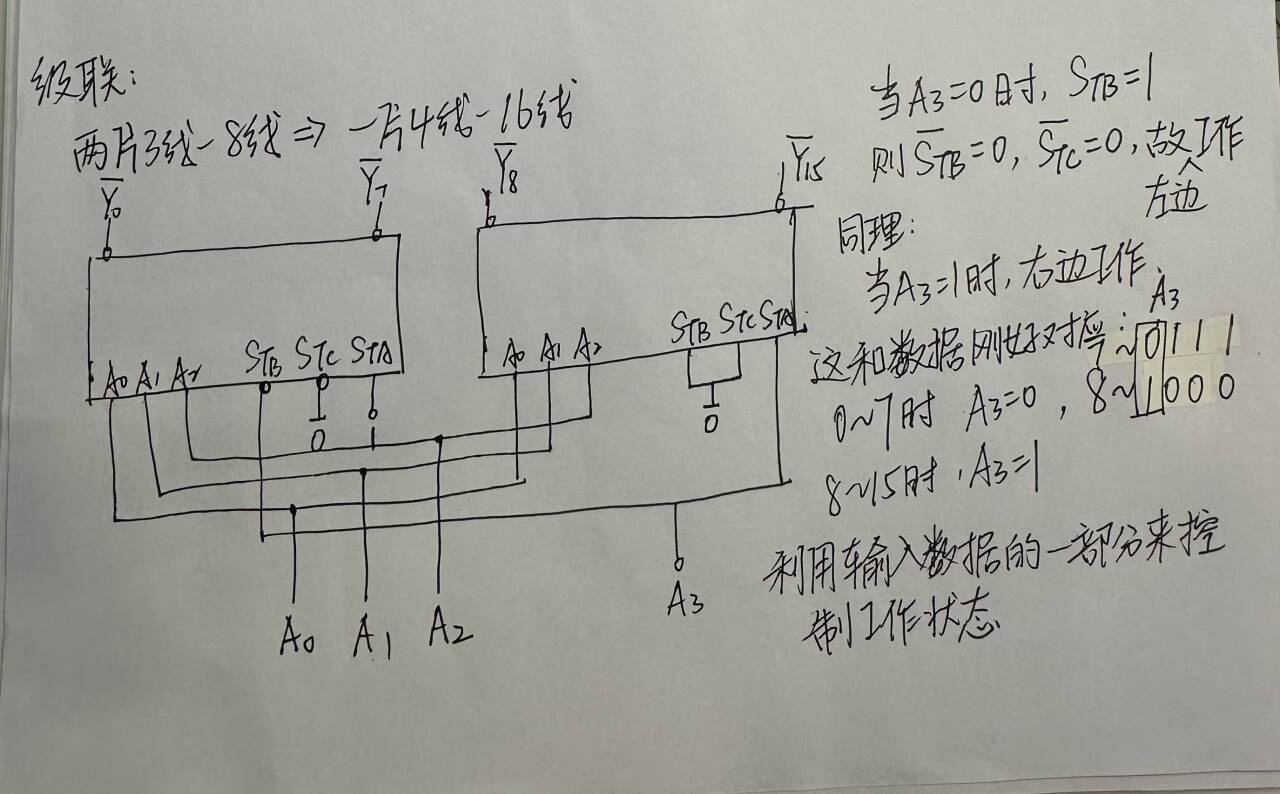 级联:
两片3线-8线⇒一片4线-16线
Y̅₀ Y̅₇ Y̅₈ Y̅₁₅
A₀ A₁ A₂ STB STC STA
0 1
A₀ A₁ A₂ STB STC STA
0
A₀ A₁ A₂ A₃
当A₃=0时, STB=1
则S̅TB=0, S̅TC=0, 故左边工作
同理:
当A₃=1时, 右边工作.
这和数据刚好对
A₃
~0111
0~7时 A₃=0, 8~1000
8~15时, A₃=1
利用输入数据的一部分来控
制工作状态